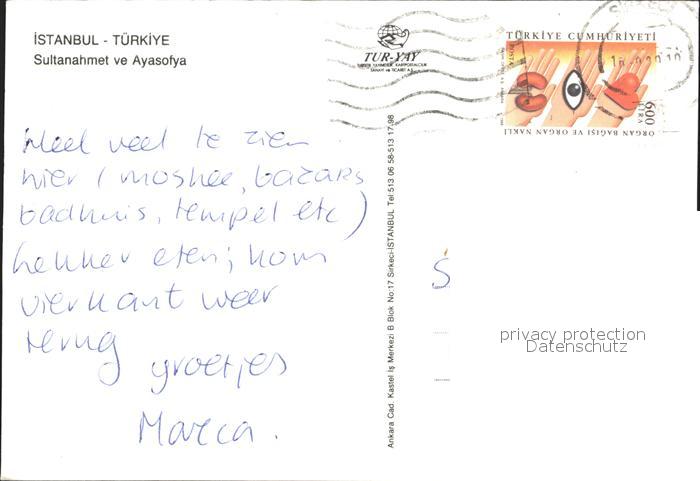 İSTANBUL - TÜRKİYE
Sultanahmet ve Ayasofya
TUR-YAY
TÜRKİYE CUMHURİYETİ
POSTA
600
LİRA
ORGAN BAĞIŞI VE ORGAN NAKLİ
Heel veel te zien
hier (moskee, bazars
badhuis, tempel etc)
lekker eten; kom
vierkant weer
terug
groetjes
Ankara Cad. Kastel İş Merkezi B Blok No:17 Sirkeci-İSTANBUL Tel:513 06 58-513 17 98
S
privacy protection
Datenschutz